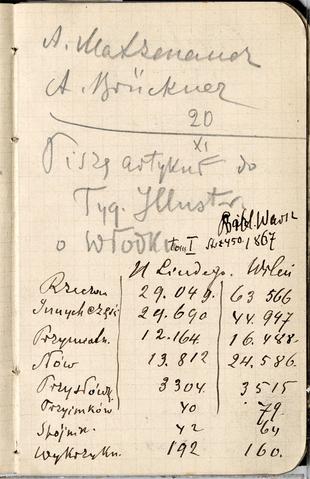 A. Matzenauer
A. Brückner
20
XI
Piszę artykuł do
Tyg. Illustr.
o Włodk
Bibl. Warsz
tom I 1867
U Lindego. Wileń
Rzeczown 29.049. 63 566
Innych części 29.690 44 947
Przymiotn. 12.164 16.488.
Słów 13.812 24.586.
Przysłów 3304 3515
Przyimków 40 79.
Spójnik. 42 64
Wykrzykn. 192 160.